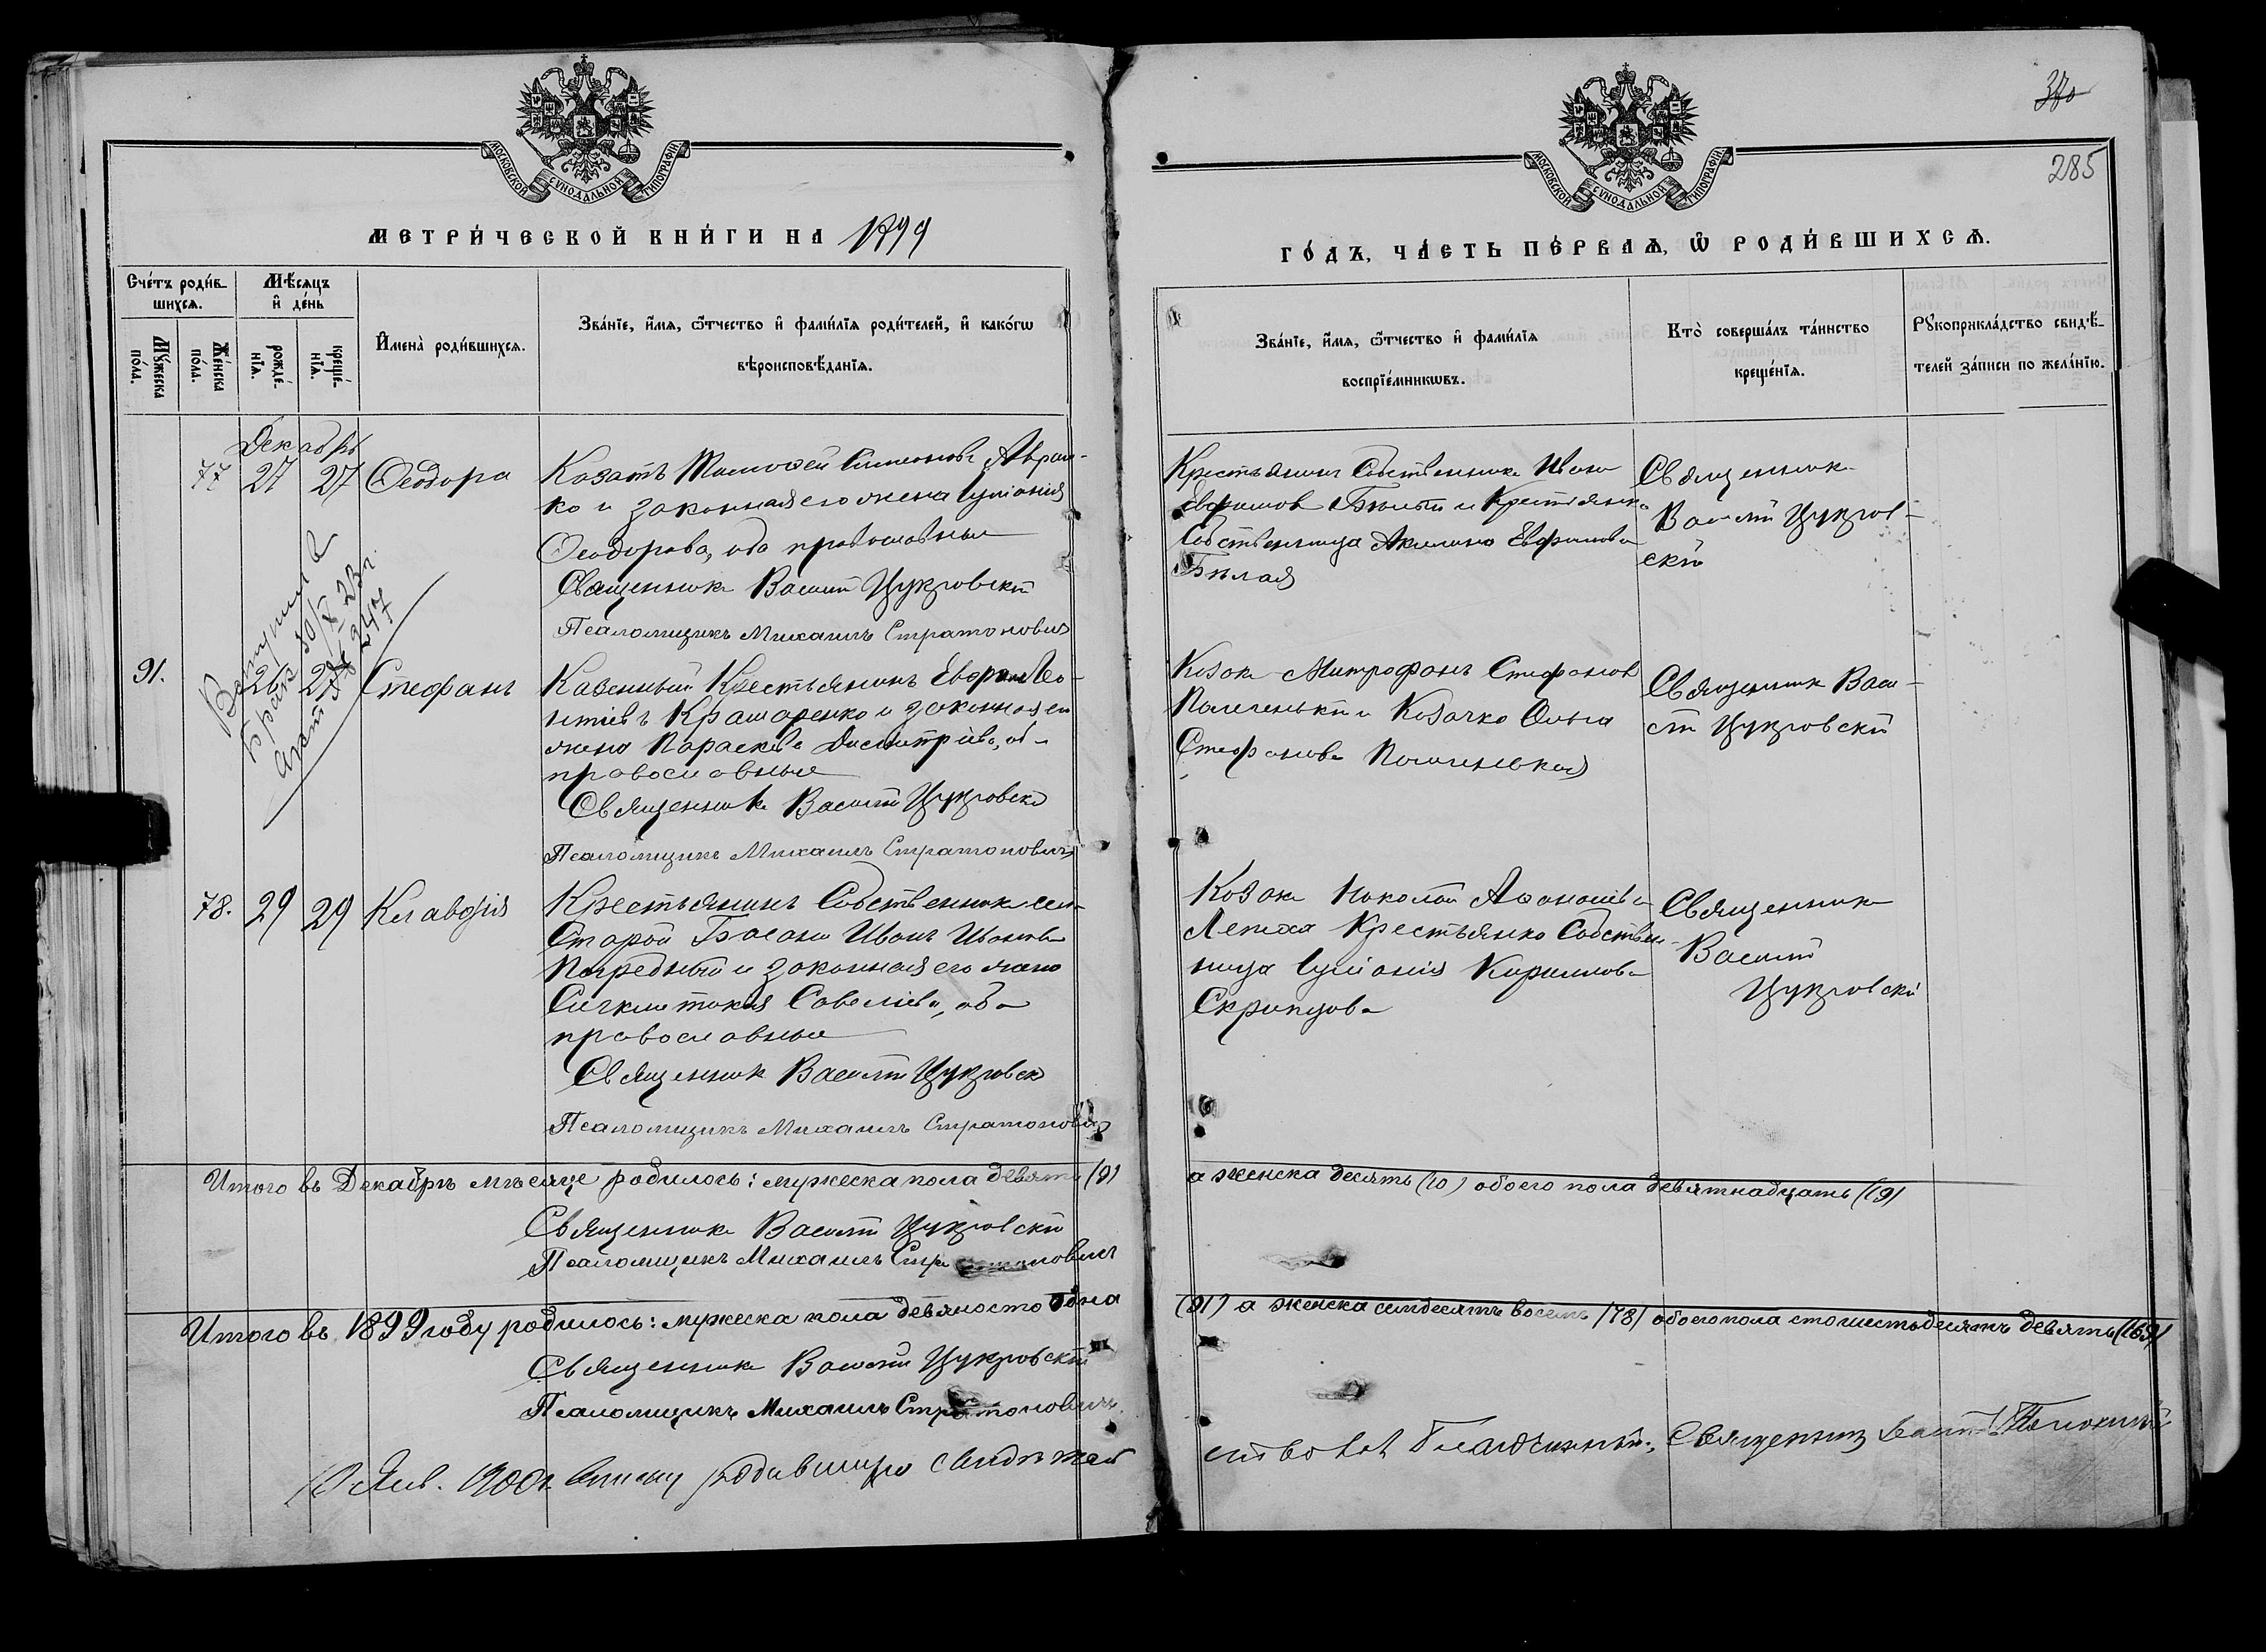 340
285
МОСКОВСКОЙ СѴНОДАЛЬНОЙ ТИПОГРАФІИ
МОСКОВСКОЙ СѴНОДАЛЬНОЙ ТИПОГРАФІИ
МЕТРИ́ЧЕСКОЙ КНИ́ГИ НА 1899
ГО́ДЪ, ЧА́СТЬ ПЕ́РВАѦ, Ѿ РОДИ́ВШИХСѦ.
Сче́тъ роди́вшихсѧ.
Мѣ́сѧцъ и҆ де́нь
Мꙋ́жеска по́ла.
Же́нска по́ла.
рожде́нїѧ.
креще́нїѧ.
И҆мена̀ роди́вшихсѧ.
Зва́нїе, и҆́мѧ, ѻ҆́тчество и҆ фами́лїѧ роди́телей, и҆ како́гѡ
вѣроисповѣ́данїѧ.
Зва́нїе, и҆́мѧ, ѻ҆́тчество и҆ фами́лїѧ
воспрїе́мникѡвъ.
Кто̀ соверша́лъ та́инство
креще́нїѧ.
Рꙋкоприкла́дство свидѣ́-
телей за́писи по жела́нїю.
Декабрь
77 27 27 Ѳеодора
Козакъ Тимоѳей Симеоновъ Аврам-
ко и законная его жена Іуліанія
Ѳеодорова, оба православные
Священникъ Василій Цукровскій
Псаломщикъ Михаилъ Стратоновичъ
Крестьянинъ Собственникъ Иванъ
Евфимовъ Бѣлый и Крестьянка
Собственница Акилина Евфимова
Бѣлая
Священникъ
Василій Цукров-
скій
Вступил в
брак 30/X 23 г.
акт № 247
91. 26 27 Стефанъ
Казенный Крестьянинъ Ле-
нтіевъ Крамаренко и законная его
жена Параскева Димитріева, оба
православные
Священникъ Василій Цукровскій
Псаломщикъ Михаилъ Стратоновичъ
Козакъ Митрофанъ Стефановъ
и Козачка Ольга
Стефанова
Священникъ Васи-
лій Цукровскій
78. 29 29 Клавдія
Крестьянинъ Собственникъ села
Старой Басани Иванъ Ивановъ
и законная его жена
Савеліева, оба
православные
Священникъ Василій Цукровскій
Псаломщикъ Михаилъ Стратоновичъ
Козакъ Николай Аѳанасіевъ
Лепеха Крестьянка Собствен-
ница Іуліанія Кириллова
Скрипцова
Священникъ
Василій
Цукровскій
Итого въ Декабрѣ мѣсяце родилось: мужеска пола девять (9)
а женска десять (10) обоего пола девятнадцать (19)
Священникъ Василій Цукровскій
Псаломщикъ Михаилъ Стратоновичъ
Итого въ 1899 году родилось: мужеска пола девяносто одна
(91) а женска семдесятъ восемь (78) обоего пола сто шестьдесятъ девять (169)
Священникъ Василій Цукровскій
Псаломщикъ Михаилъ Стратоновичъ
Янв. 1900 г. запись родившихся свидѣтель-
ствовалъ Благочинный, Священникъ